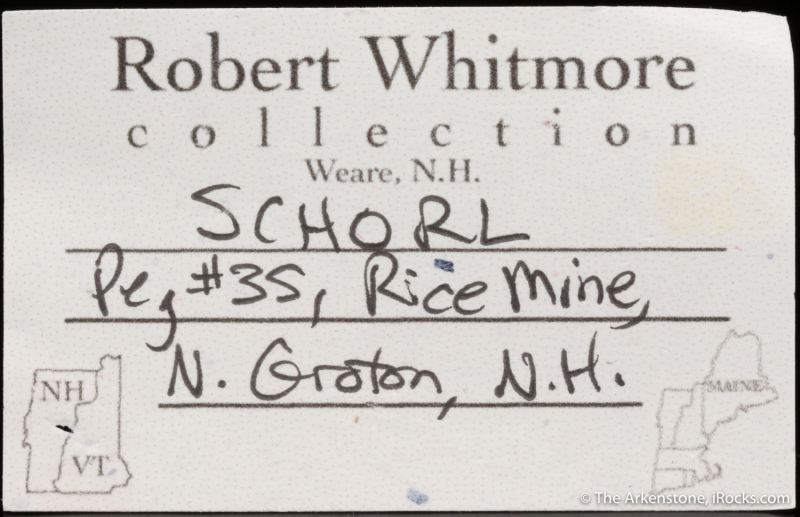 Robert Whitmore
collection
Weare, N.H.
SCHORL
Peg #35, Rice Mine,
N. Groton, N.H.
NH
VT
MAINE
© The Arkenstone, iRocks.com